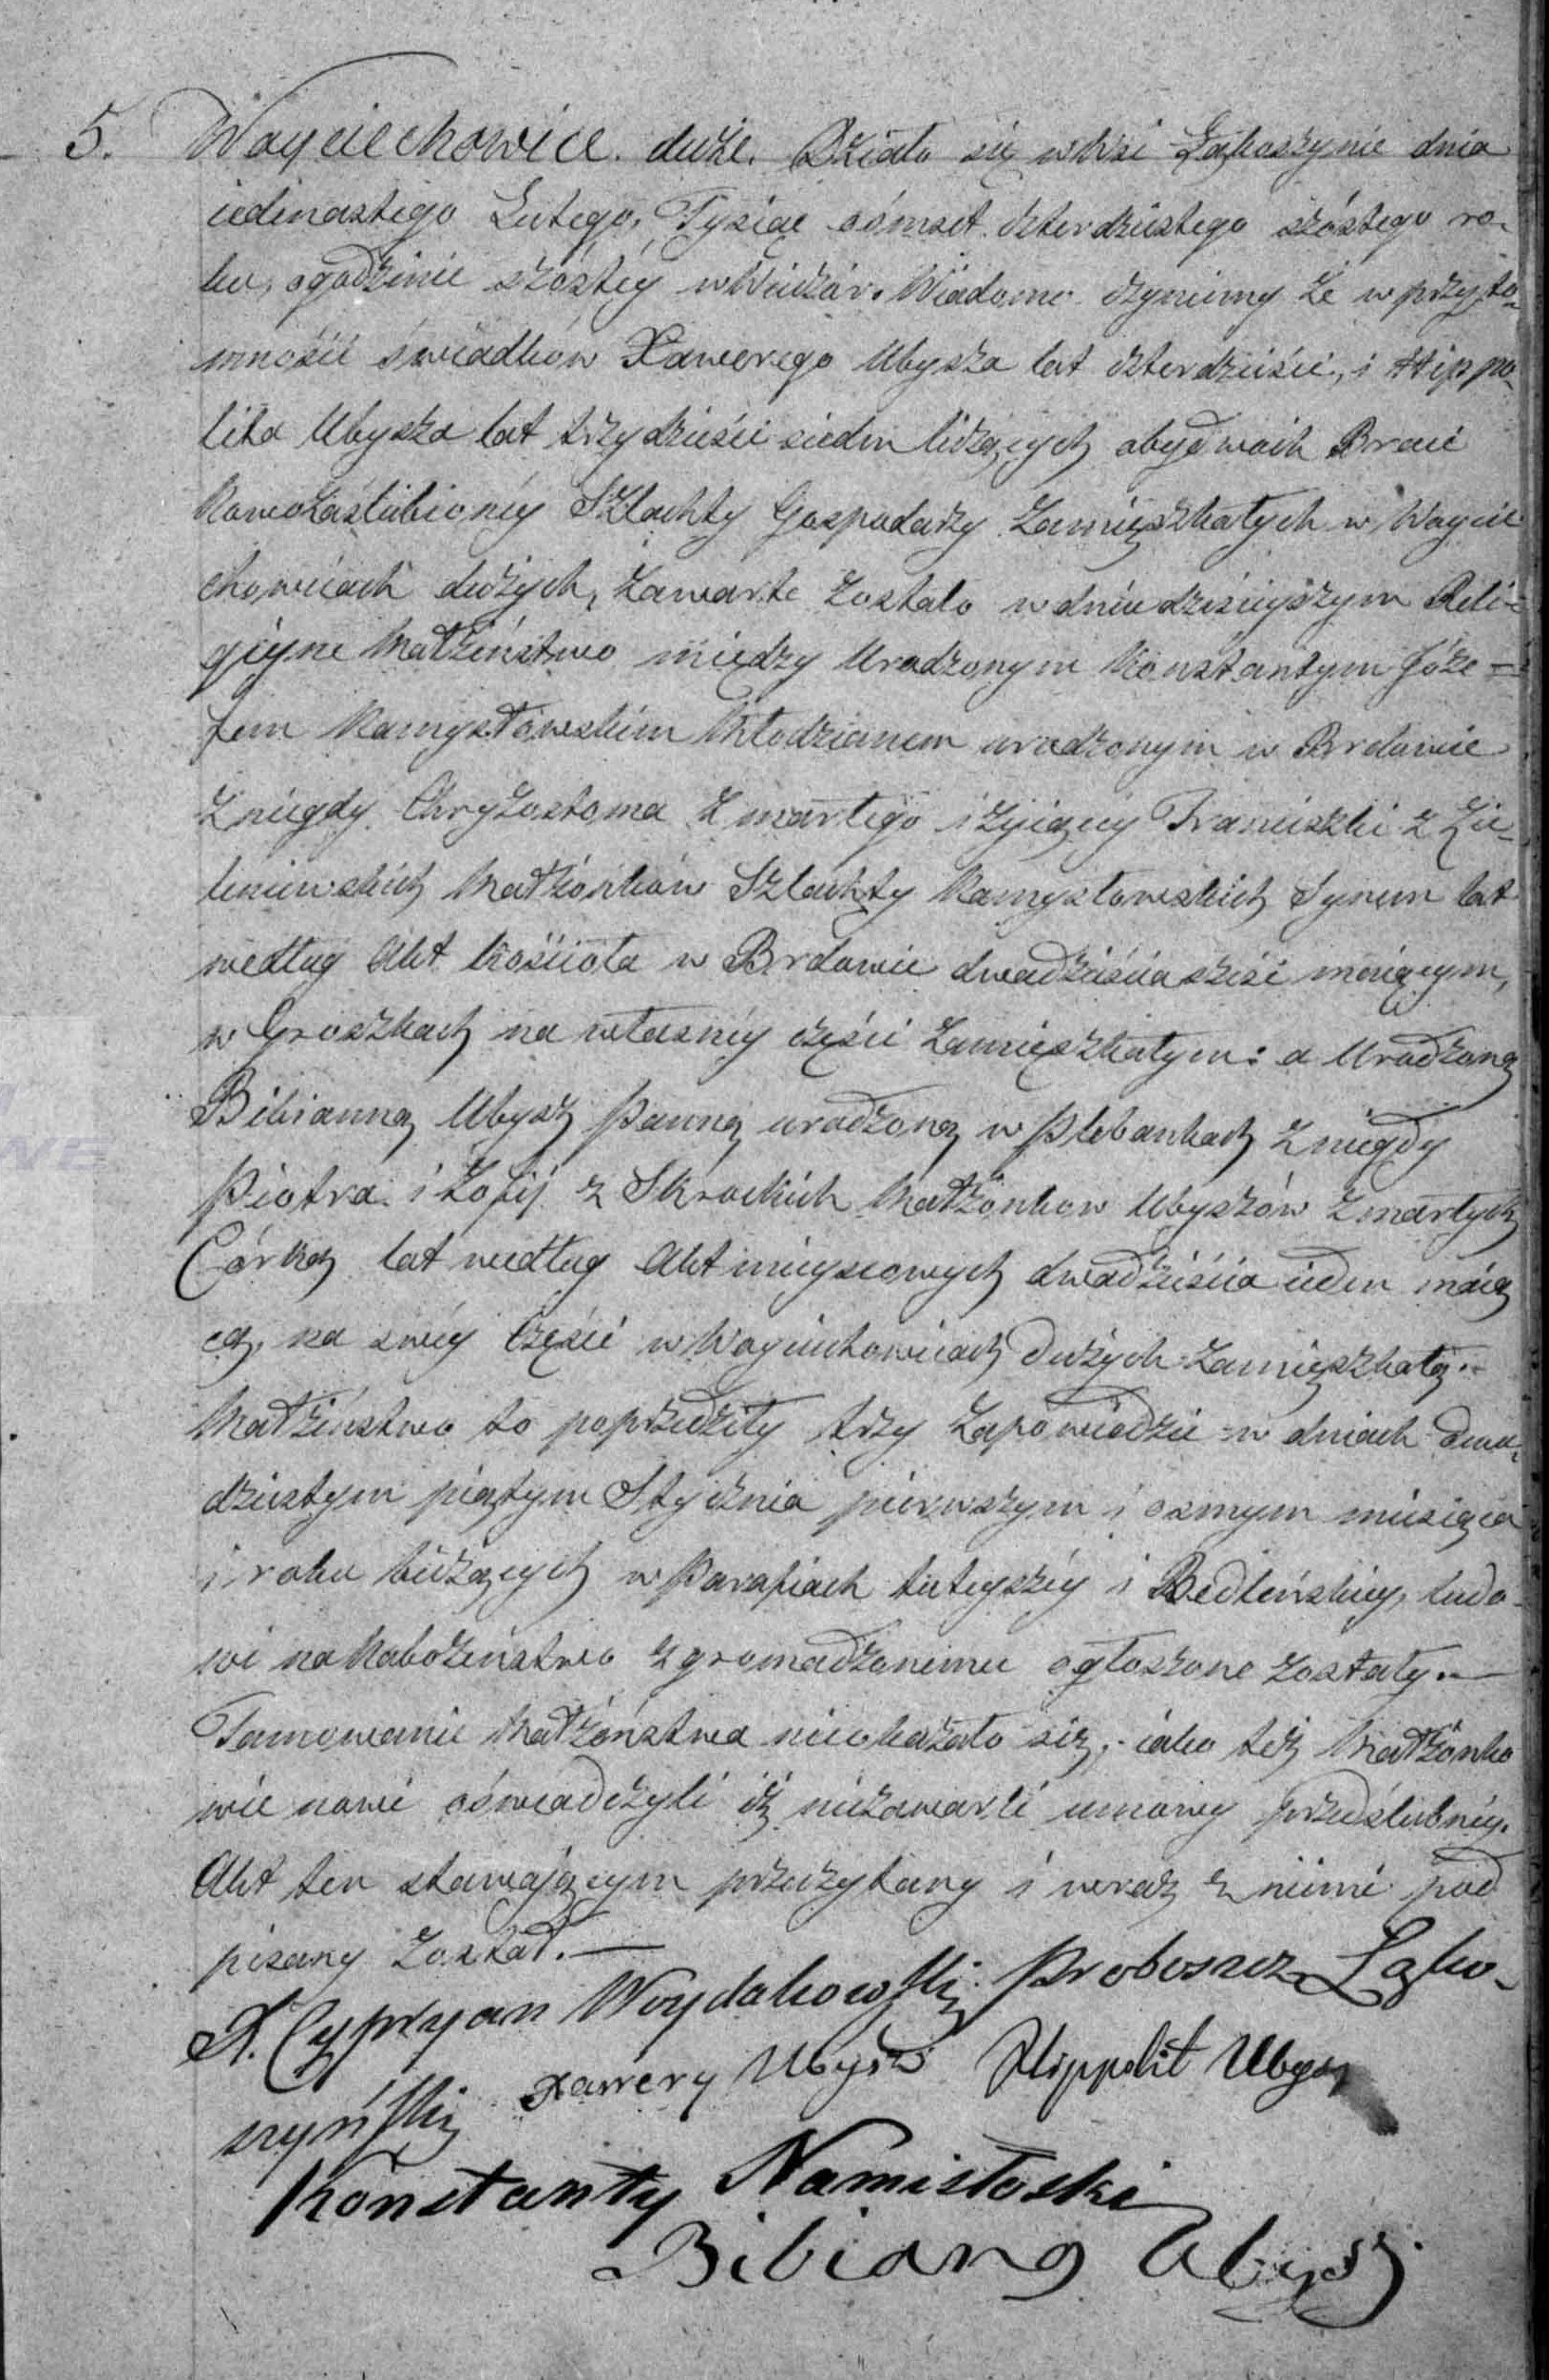 5. Woyciechowice duże. Działo się w Wsi Łąkoszynie dnia
iedenastego Lutego, Tysiąc ośmset czterdziestego szóstego ro-
ku, o godzinie szóstéy w Wieczór. Wiadomo czyniemy że w przyto-
mności świadków Xawerego Ubysza lat czterdzieści, i Hippo-
lita Ubysza lat trzydzieści siedm liczących obydwóch Braci
Nowozaślubionéy Szlachty Gospodarzy zamięszkałych w Woycie
chowicach dużych, zawarte zostało w dniu dzisieyszym Reli-
giyne Małżeństwo między Urodzonym Konstantym Józe=
fem Namysłowskim Młodzianem urodzonym w Brdowie
z niegdy Chryzostoma zmarłego i żyiącey Franciszki z Zie-
leniewskich Małżonków Szlachty Namysłowskich Synem lat
według Akt Kościoła w Brdowie dwadzieścia sześć maiącym,
w Groszkach na własnéy części zamięszkałym: a Urodzoną
Bibianną Ubysz Panną urodzoną w Plebankach z niegdy
Piotra i Zofij z Skrockich Małżonkow Ubyszów zmarłych
Córką lat według Akt mieyscowych dwadzieścia ieden maią
cą, na swéy Części w Woyciechowicach Dużych zamięszkałą.-
Małżeństwo to poprzedziły trzy Zapowiedzie w dniach dwu-
dziestym piątym Stycznia pierwszym i osmym miesiąca
i roku bieżących w Parafiach tuteyszéy i Bedleńskiey, ludo-
wi na Nabożeństwo zgromadzonemu ogłoszone zostały.—
Tamowanie Małżeństwa nieokazało się, iako też Małżonko
wie nowi oświadczyli iż niezawarli umowy przedślubnéy.
Akt ten stawaiącym przeczytany i wraz z niemi pod
pisany został.—
X. Cypryan Woydakowski Proboszcz Łąko-
szyński Xawery Ubysz Hippolit Ubysz
Konstanty Namisłoski
Bibiana Ubysz